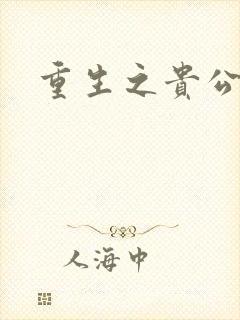 重生之貴公
人海中